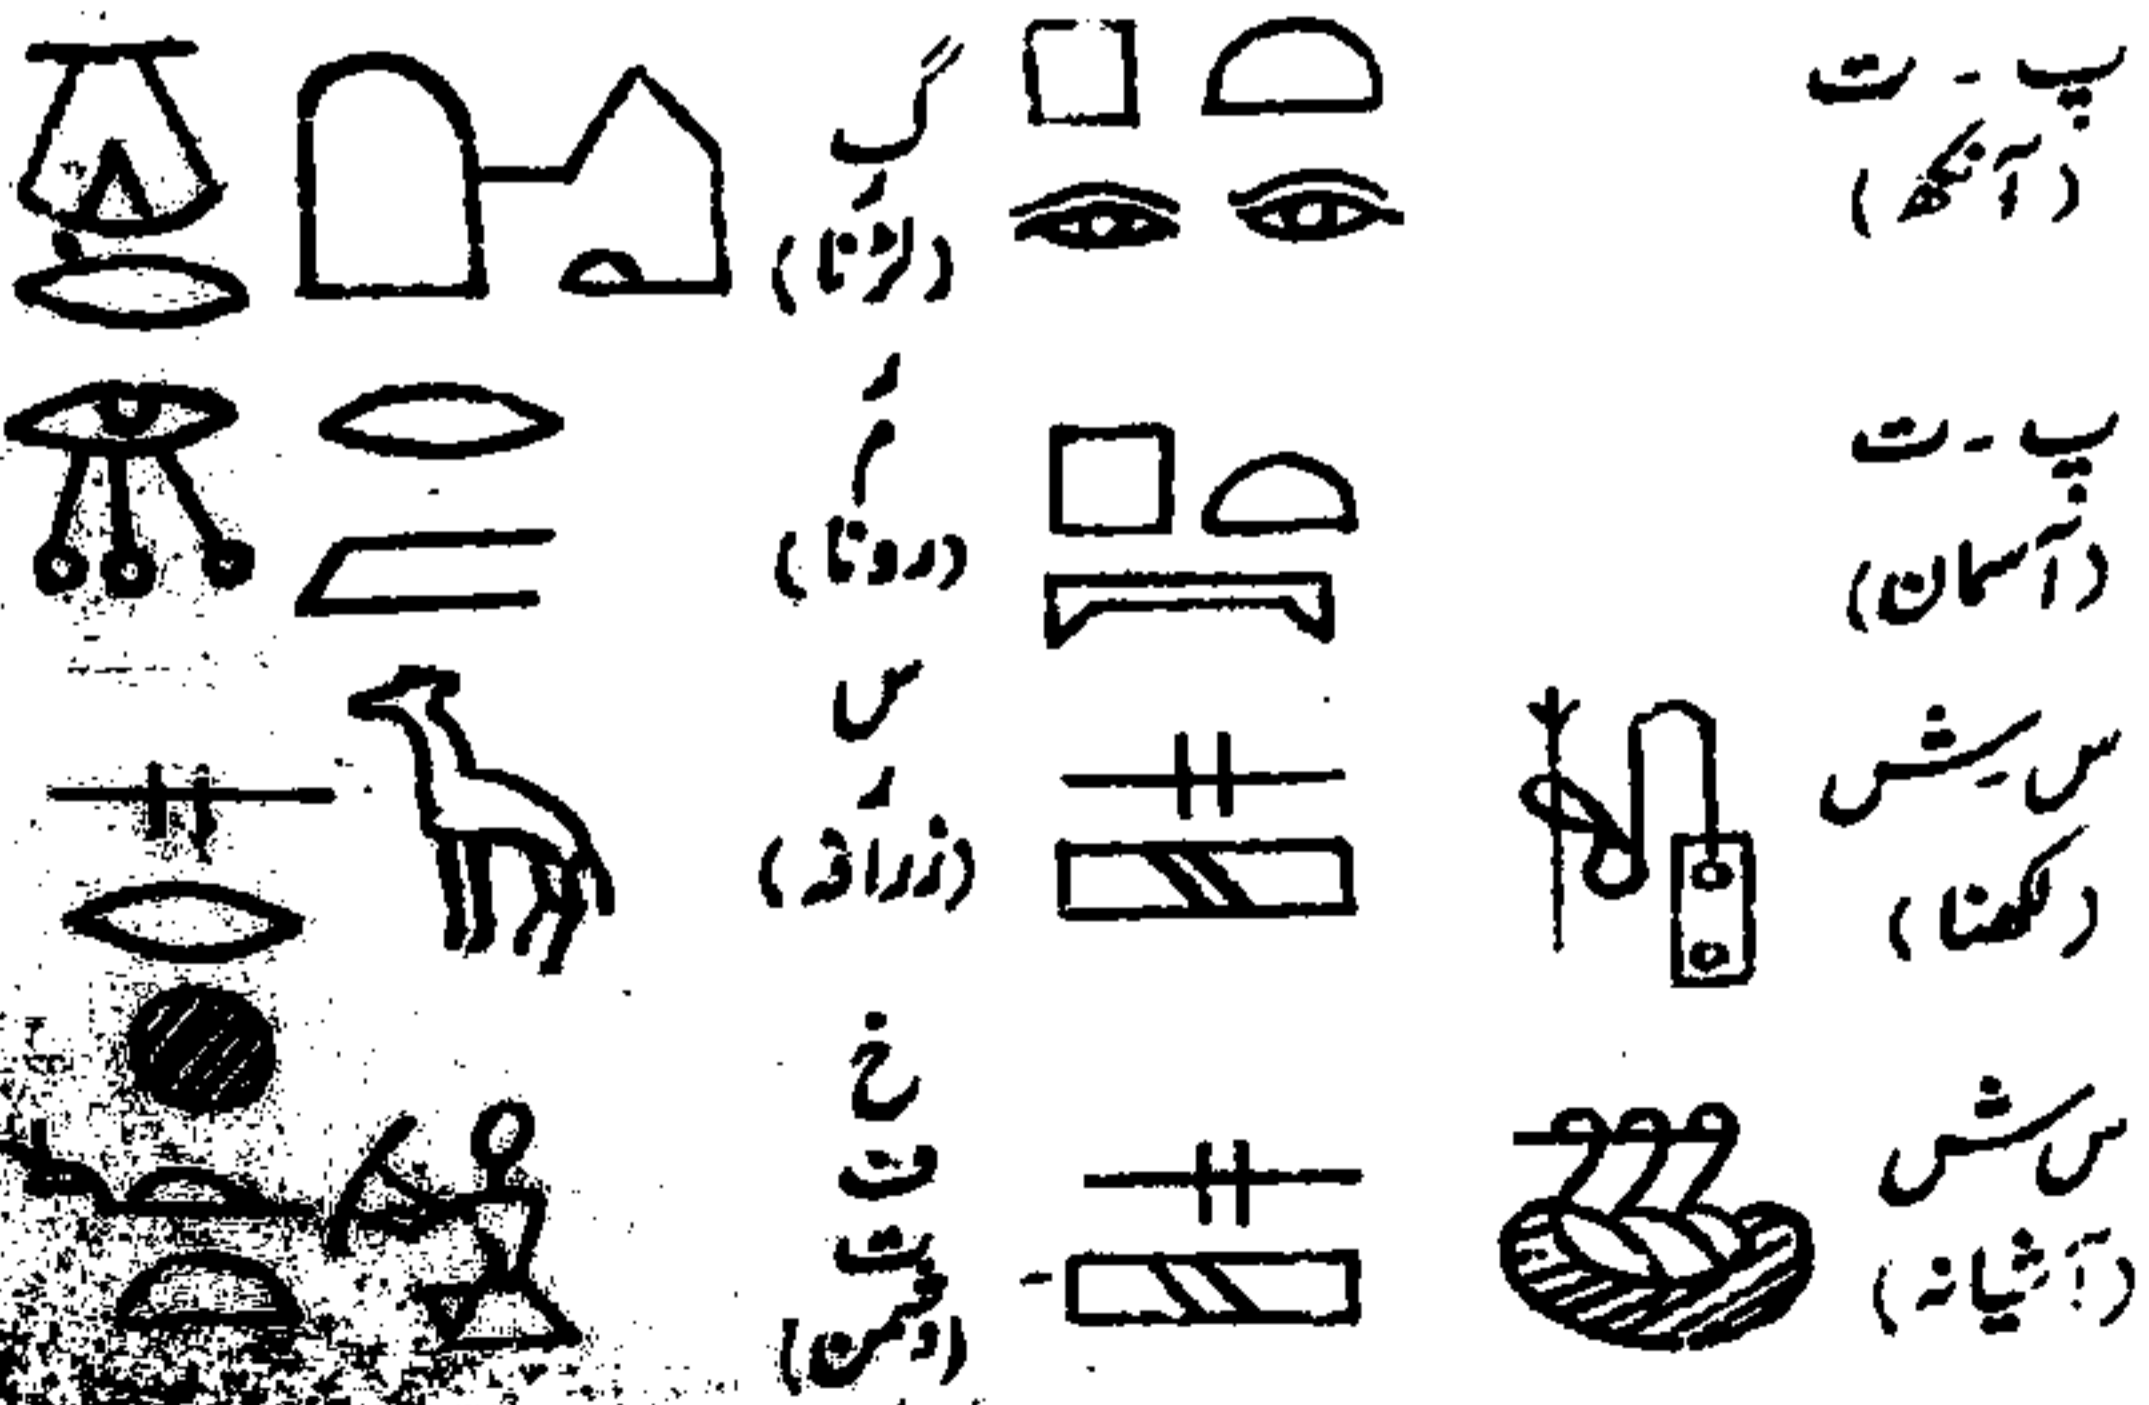 پ - ت
(آنکھ)
پ - ت
(آسمان)
س - یش
(لکھنا)
س ش
(آشیانہ)
ب
ر
(لڑنا)
ر
م
(رونا)
س
ر
(زرافہ)
خ
ف
ت
(دشمن)